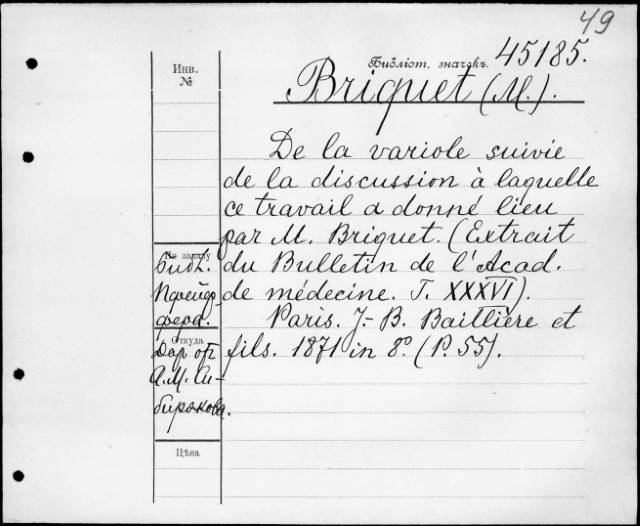 49
Инв.
№
Библіот. значекъ. 45185.
Briquet (M.).
De la variole suivie
de la discussion à laquelle
ce travail a donné lieu
par M. Briquet. (Extrait
du Bulletin de l'Acad.
de médecine. T. XXXVI).
Paris. J.-B. Baillière et
fils. 1871 in 8º. (P. 55).
По заказу
Библ.
Пфейф-
фера.
Откуда
Дар от
А.М. Си-
бирякова.
Цѣна